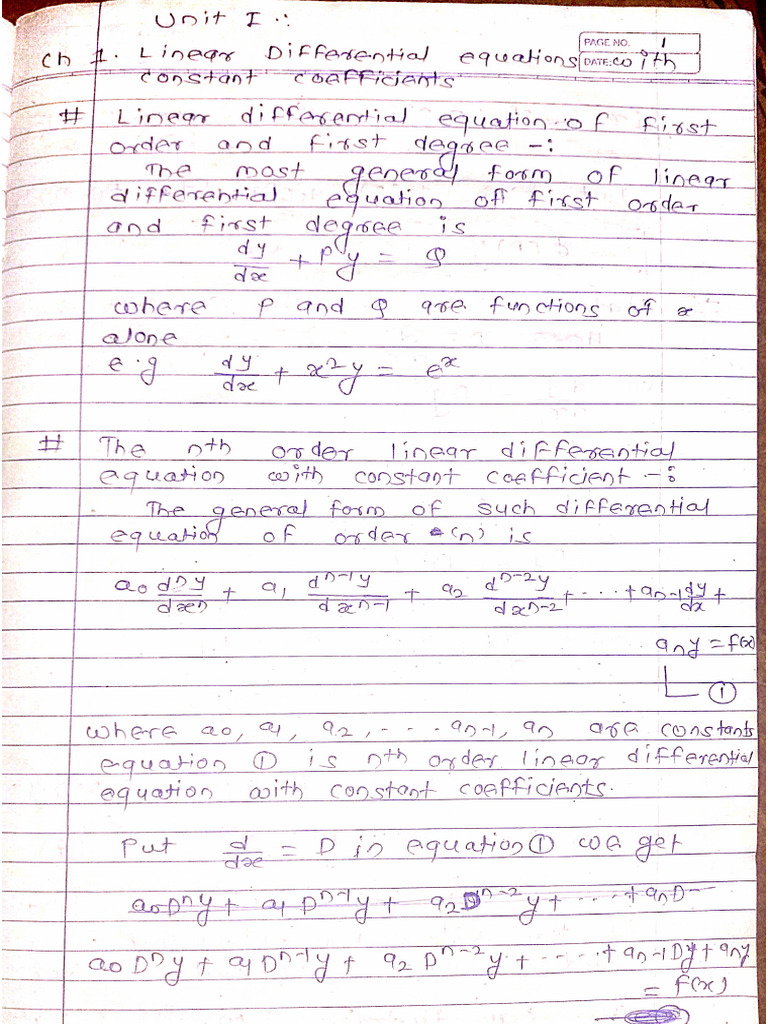 Unit I :
PAGE NO. 1
Ch 1. Linear Differential equations with
DATE:
constant coefficients
# Linear differential equation of first
order and first degree -:
The most general form of linear
differential equation off first order
and first degree is
dy/dx + Py = Q
where P and Q are functions of x
alone
e.g dy/dx + x²y = eˣ
# The nth order linear differential
equation with constant coefficient -:
The general form of such differential
equation of order (n) is
a₀ dⁿy/dxⁿ + a₁ dⁿ⁻¹y/dxⁿ⁻¹ + a₂ dⁿ⁻²y/dxⁿ⁻² + ... + aₙ₋₁ dy/dx +
aₙy = f(x)
①
where a₀, a₁, a₂, - - - aₙ₋₁, aₙ are constants
equation ① is nth order linear differential
equation with constant coefficients.
Put d/dx = D in equation ① we get
a₀Dⁿy + a₁Dⁿ⁻¹y + a₂Dⁿ⁻²y + ... + aₙD
a₀Dⁿy + a₁Dⁿ⁻¹y + a₂Dⁿ⁻²y + ..... + aₙ₋₁Dy + aₙy
= f(x)